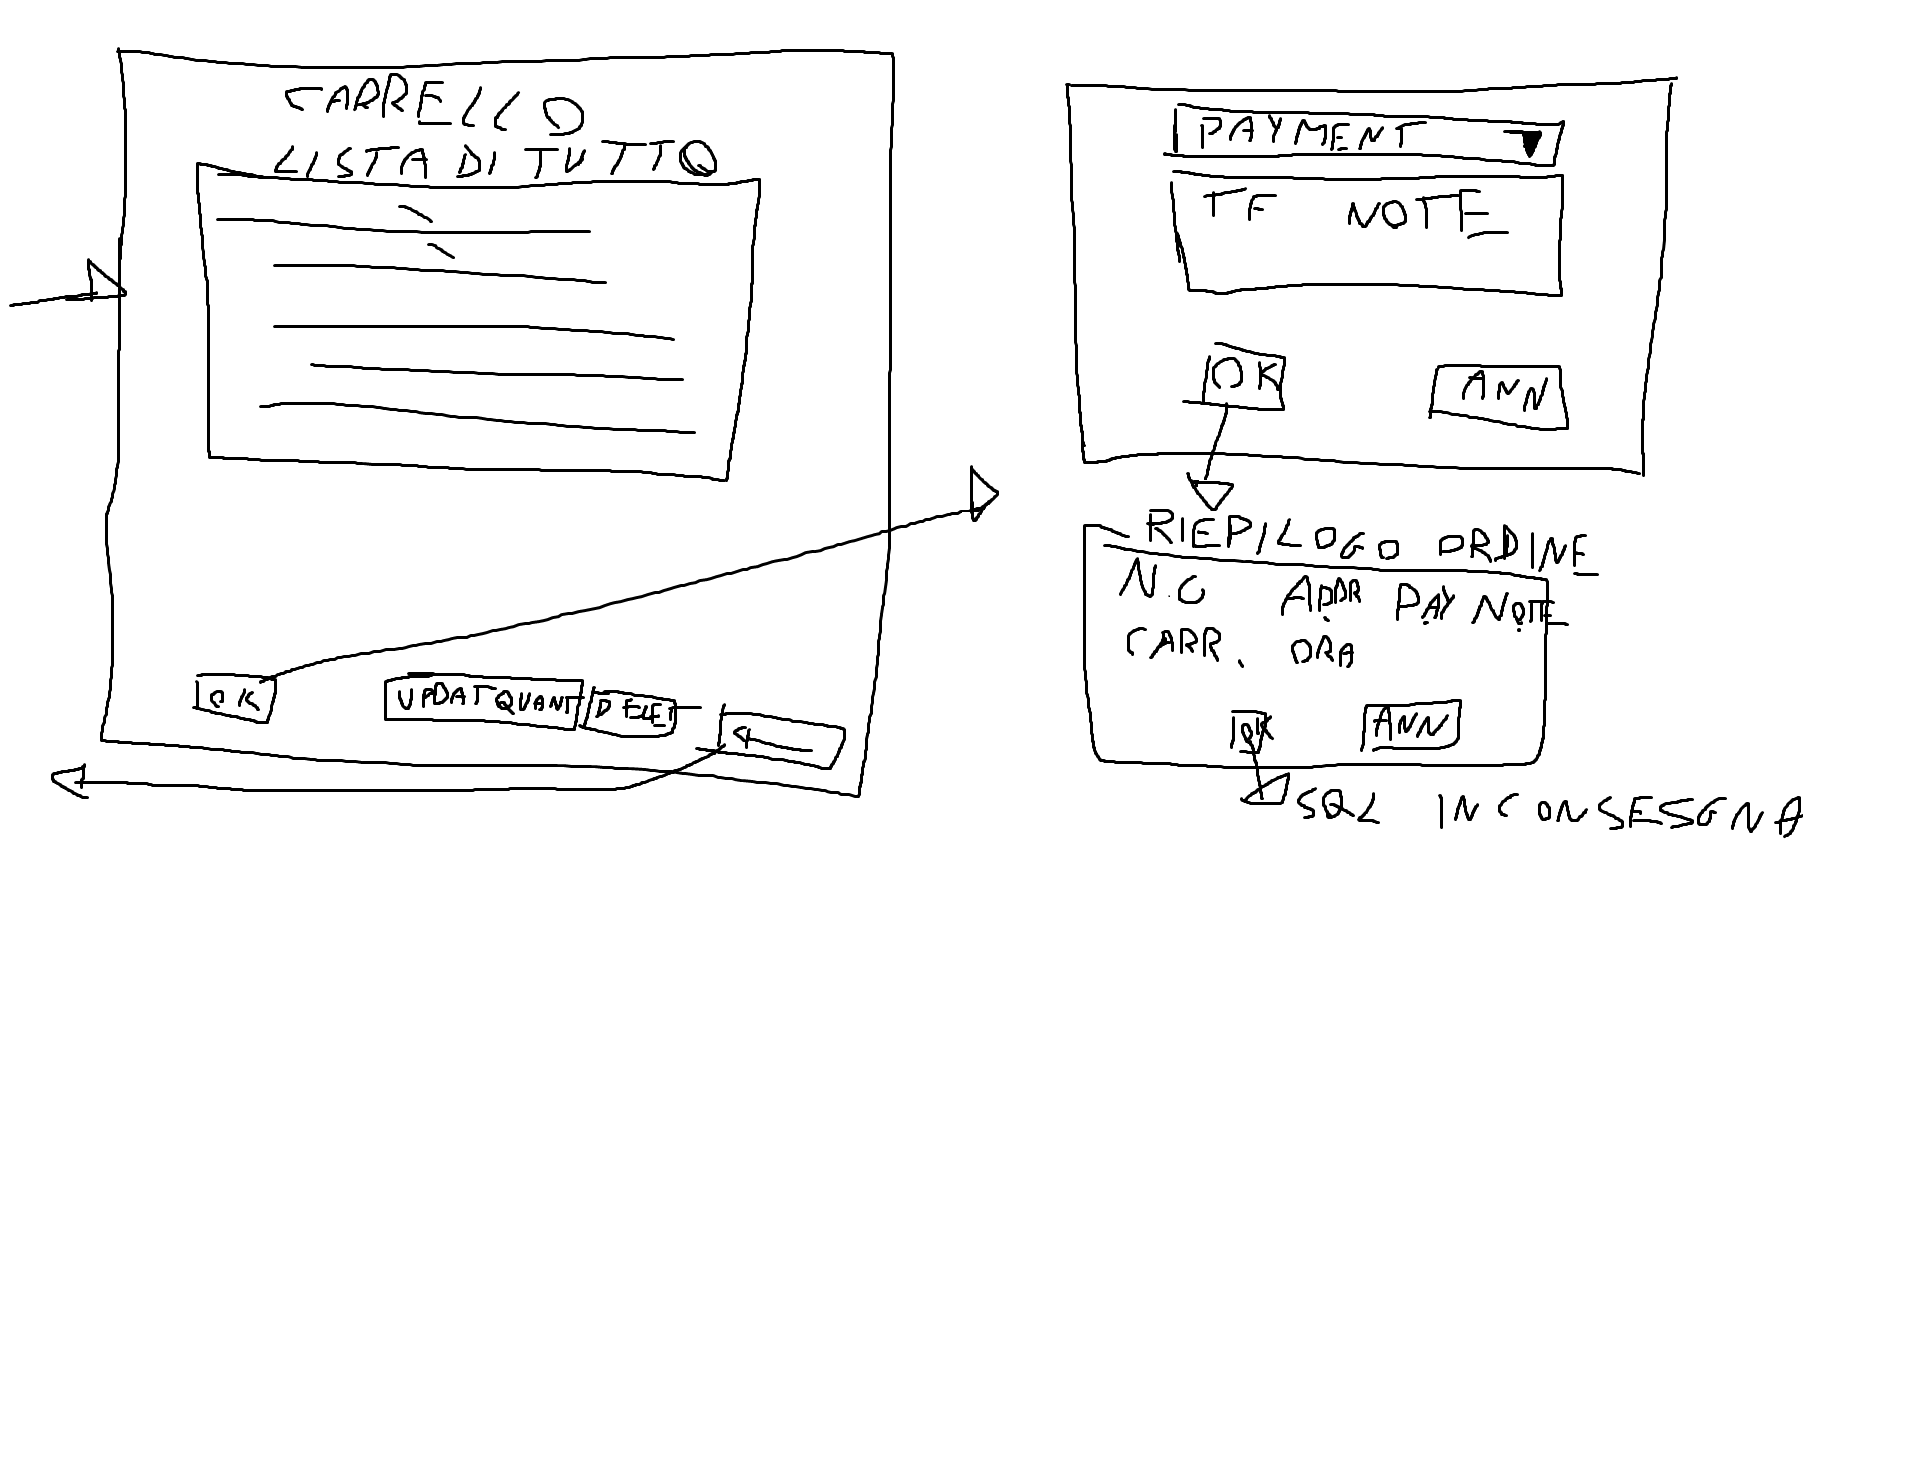 CARRELLO
LISTA DI TUTTO
OK
UPDATQUANT
DELET
PAYMENT
TF NOTE
OK
ANN
RIEPILOGO ORDINE
N.C ADDR PAY NOTE
CARR. ORA
OK
ANN
SQL INCONSESGNA